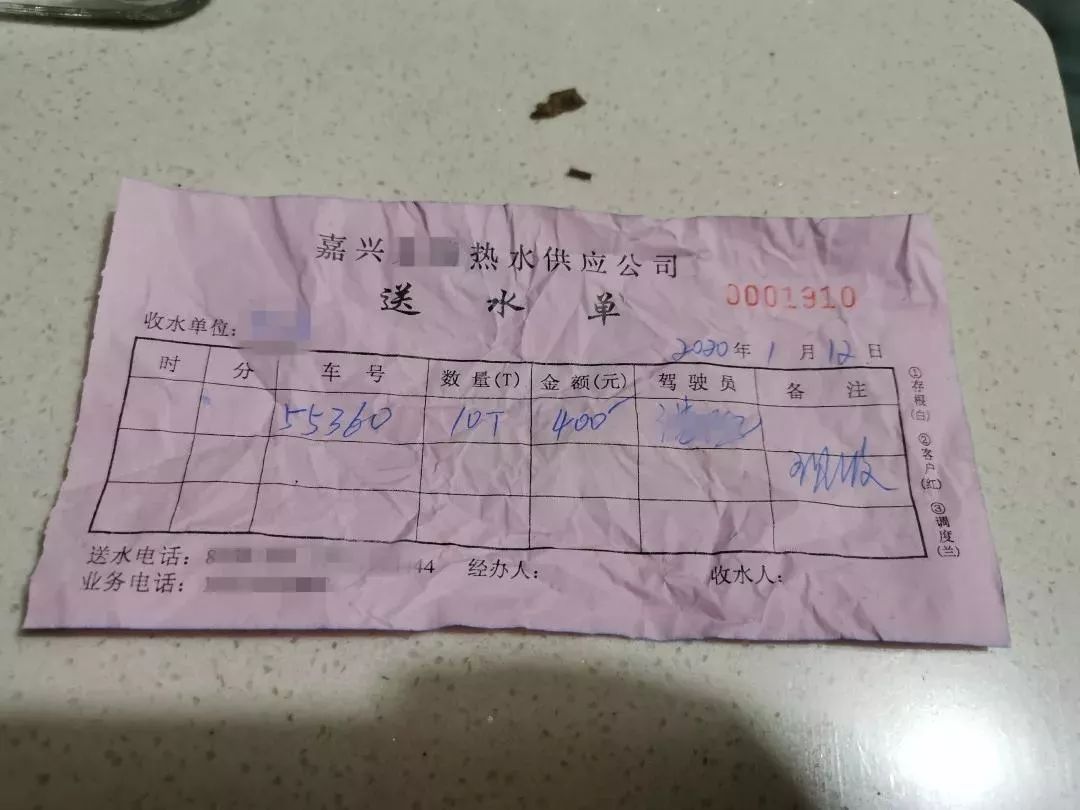 嘉兴 热水供应公司
送水单 0001910
收水单位：
2020年1月12日
时 分 车号 数量(T) 金额(元) 驾驶员 备注
55360 10T 400
现收
送水电话：8 44 经办人： 收水人：
业务电话：
①存根(白) ②客户(红) ③调度(兰)